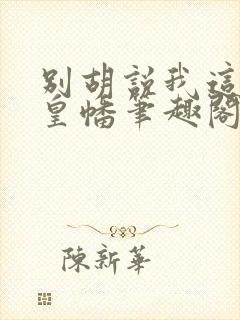 別胡說我這
皇幡筆趣閣
陳新華